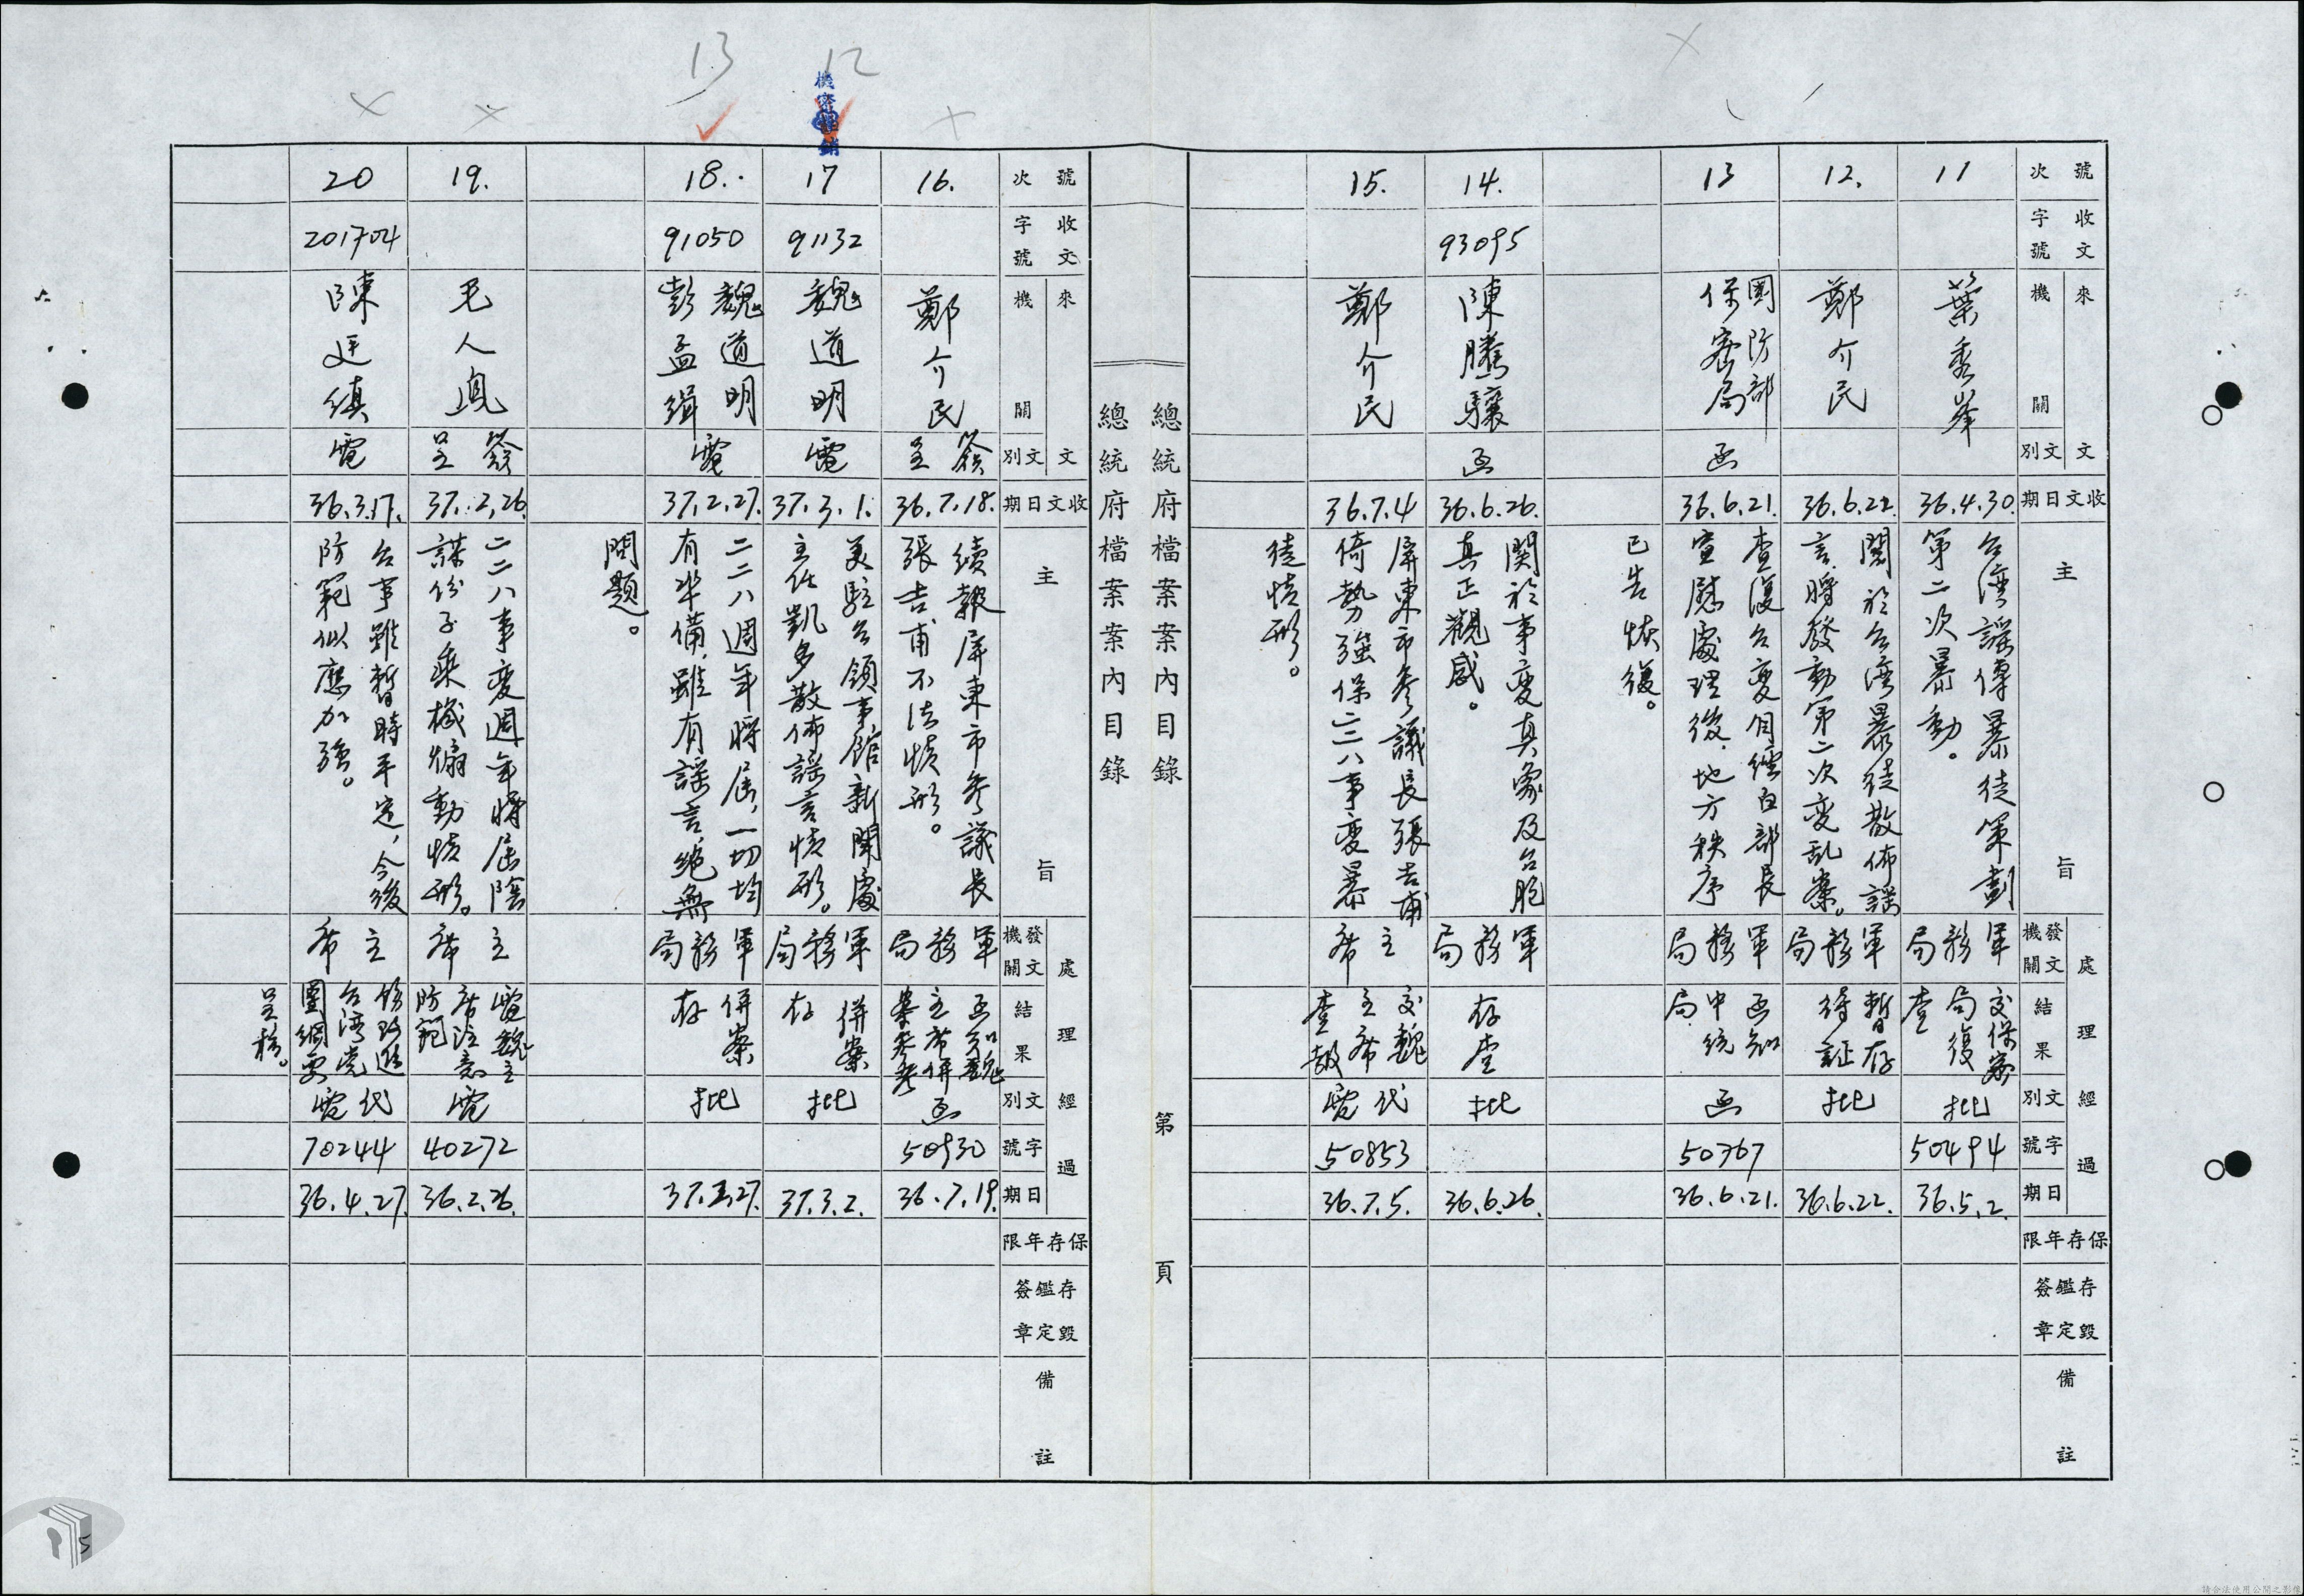 13 12
機密註銷
號次
收文字號
來文機關
文別
收文日期
主旨
處理經過
發文機關
結果
文別
字號
日期
保存年限
存毀鑑定簽章
備註
11
葉秀峯
36.4.30.
台灣謠傳暴徒策劃
第二次暴動。
軍務局
交保密
局復
查
批
50494
36.5.2.
12.
鄭介民
36.6.22.
關於台灣暴徒散佈謠
言將發動第二次变乱案。
軍務局
暫存
待証
批
36.6.22.
13
國防部
保密局
函
36.6.21.
查復台变自經白部長
宣慰處理後,地方秩序
已告恢復。
軍務局
函知
中統
局
函
50767
36.6.21.
14.
93095
陳騰驤
函
36.6.26.
関於事变真象及台胞
真正觀感。
軍務局
存查
批
36.6.26.
15.
鄭介民
36.7.4
屏東市參議長張吉甫
倚勢強保二二八事变暴
徒情形。
主席
交魏
主席
查報
代電
50853
36.7.5.
總統府檔案案內目錄
第 頁
總統府檔案案內目錄
號次
收文字號
來文機關
文別
收文日期
主旨
處理經過
發文機關
結果
文別
字號
日期
保存年限
存毀鑑定簽章
備註
16.
鄭介民
簽呈
36.7.18.
續報屏東市參議長
張吉甫不法情形。
軍務局
函知魏
主席併
案參考
函
50930
36.7.19.
17
91132
魏道明
電
37.3.1.
美駐台領事館新聞處
主任凱多散佈謠言情形。
軍務局
併案
存
批
37.3.2.
18.
91050
魏道明
彭孟緝
電
37.2.27.
二二八週年將屆,一切均
有準備,雖有謠言,絕無
問題。
軍務局
併案
存
批
37.2.27.
19.
毛人鳳
簽呈
37.2.26.
二二八事变週年將屆陰
謀份子乘機煽動情形。
主席
電魏主
席注意
防範
電
40272
36.2.26.
20
201704
陳廷縝
電
36.3.17.
台事雖暫時平定,今後
防範似應加強。
主席
台灣党
團綱要
呈核。
代電
70244
36.4.27.
5
請合法使用公開之影像